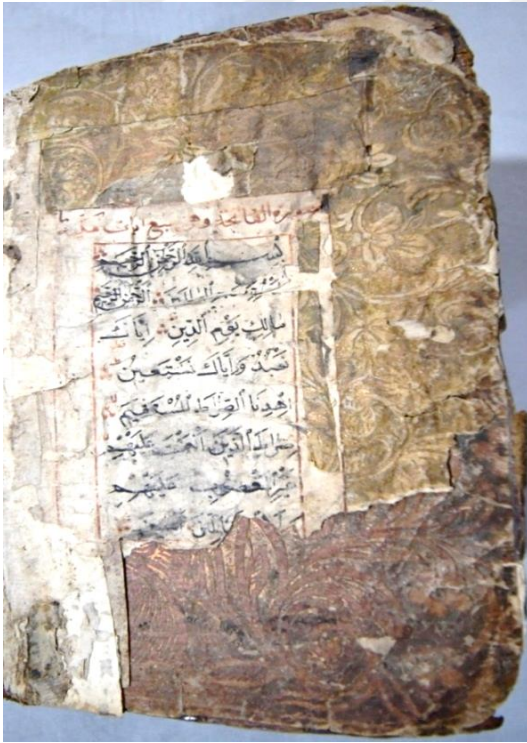 سورة الفاتحة وهي سبع ايات
بسم الله الرحمن الرحيم
الرحمن الرحيم
مالك يوم الدين اياك
نعبد واياك نستعين
اهدنا الصراط المستقيم
صراط الذين انعمت عليهم
غير المغضوب عليهم